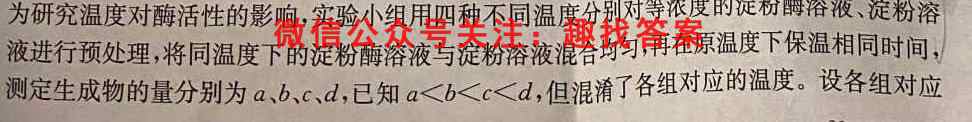 为研究温度对酶活性的影响,实验小组用四种不同温度分别对等浓度的淀粉酶溶液、淀粉溶
液进行预处理,将同温度下的淀粉酶溶液与淀粉溶液混合均匀,再在原温度下保温相同时间,
微信公众号关注:趣找答案
测定生成物的量分别为 a、b、c、d,已知 a<b<c<d,但混淆了各组对应的温度。设各组对应